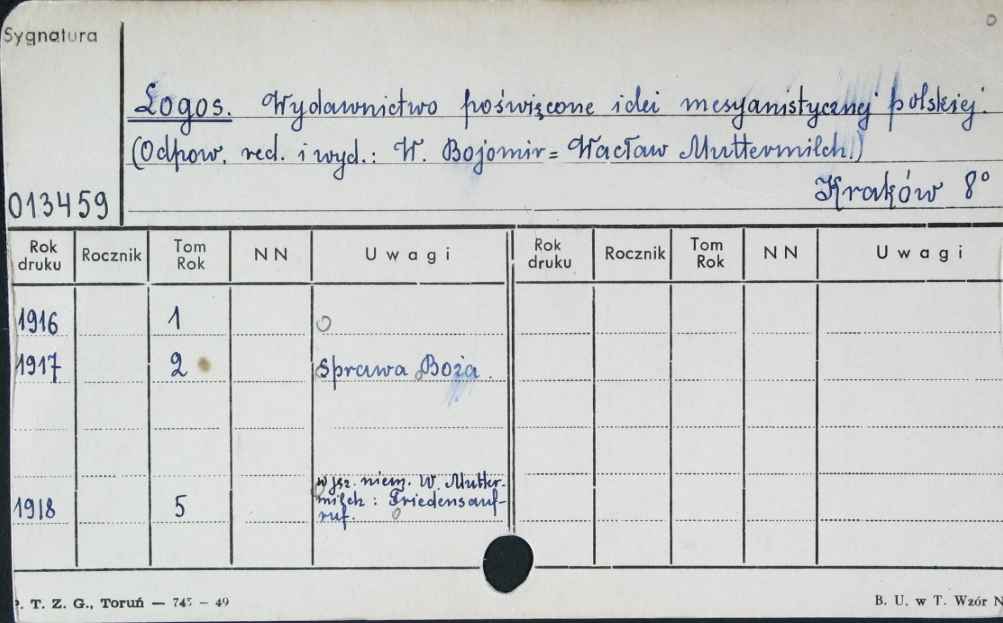 Sygnatura
Logos. Wydawnictwo poświęcone idei mesyanistycznej polskiej.
(Odpow. red. i wyd.: W. Bojomir = Wacław Muttermilch.)
013459
Kraków 8°
Rok druku Rocznik Tom Rok NN Uwagi Rok druku Rocznik Tom Rok NN Uwagi
1916 1
1917 2 Sprawa Boża.
w jęz. niem. W. Mutter-
1918 5 milch: Friedensauf-
ruf.
. T. Z. G., Toruń — 745 - 49
B. U. w T. Wzór N